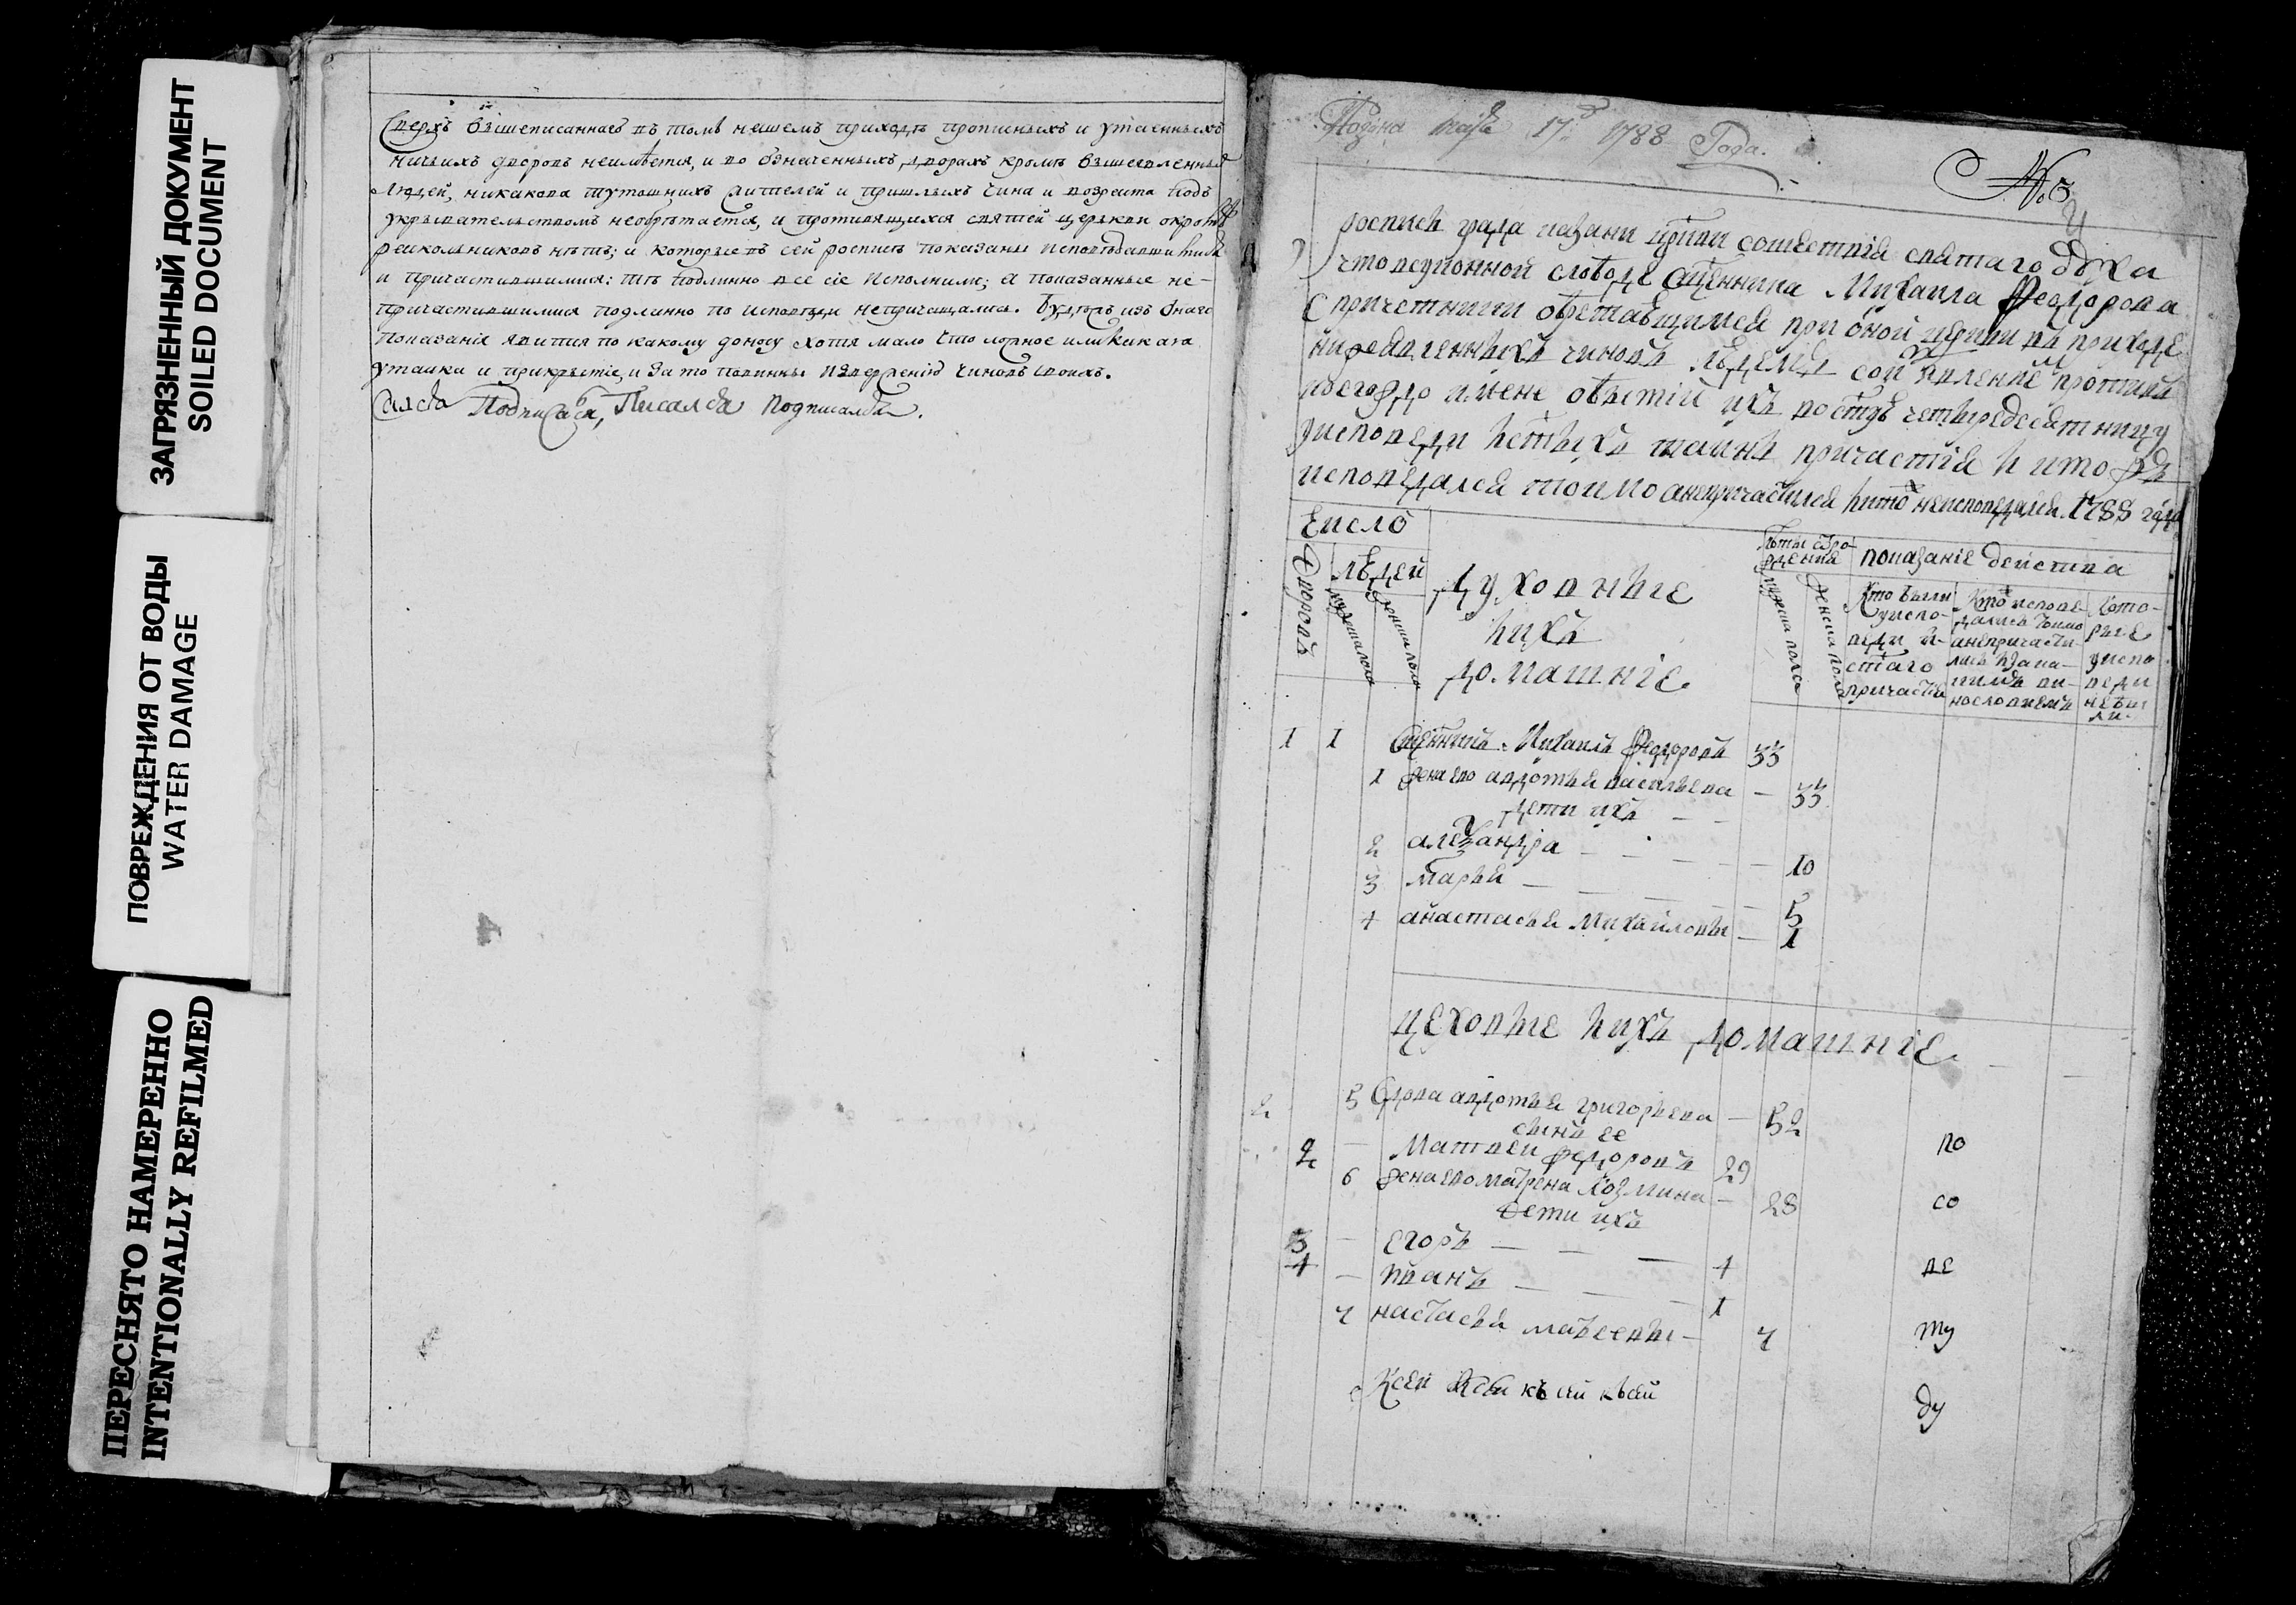 ЗАГРЯЗНЕННЫЙ ДОКУМЕНТ
SOILED DOCUMENT
ПОВРЕЖДЕНИЯ ОТ ВОДЫ
WATER DAMAGE
ПЕРЕСНЯТО НАМЕРЕННО
INTENTIONALLY REFILMED
Сверхъ вышеписаннаго въ томъ нашемъ приходѣ прописныхъ и утаенныхъ
ничьихъ дворовъ неимѣется, и во означенныхъ дворахъ кромѣ вышеявленныхъ
людей, никакова тутошнихъ жителей и пришлыхъ чина и возраста подъ
укрывательствомъ необрѣтается, и противящихся святей церькви
раскольниковъ нѣтъ; и которые въ сей росписѣ показаны исповѣдавшимися
и причастившимися: тѣ подлинно все сіе исполнили; а показанные не-
причастившимися подлинно по исповѣди непричащались. Будетъ изъ онаго
показанія явится по какому доносу хотя мало что ложное или какая
утайка и прикрытіе, и за то повинны изверженію чиновъ своихъ.
Подана маия 17 1788 Года.
№ 3
роспись града казани церкви сошествія святаго духа
что в суконной слободе сщенника Михаила Феодорова
с причетники обретающимся при оной церкви въ приходе
нижеявленныхъ чиновъ людемъ сои явлениемъ противъ
коегождо имене о бытій ихъ во стую четыредесятницу
у исповеди и стыхъ таинъ причастія и ктождъ
исповедался токмо а непричастился и кто неисповедался. 1788 года
Число
Дворовъ
людей
мужеска полу
женска полу
Духовные
и ихъ
домашніе
Лѣты отро
ждения
мужеска полу
женска полу
показаніе действа
Кто были
у испо-
веди и
стаго
причастія
Кто испове-
дались токмо
а непричасти-
лись и за ка-
кимъ ви-
нословиемъ
Кото-
рые
у испо
веди
небы
ли.
1 1 Сщенникъ Михаилъ Феодоровъ 33
1 жена ево авдотья васильева — 33
дети ихъ
2 александра — 10
3 марья — 5
4 анастасья Михайловы — 1
цеховые и ихъ домашніе
2 5 вдова авдотья григорьева — 52
сынъ ее
2 — Матвеи федоровъ 29
6 жена ево матрена козмина — 28
дети ихъ
3 — егоръ — 4
4 — иванъ — 1
7 настасья матвеевы — 7
по
со
ве
ту
ду